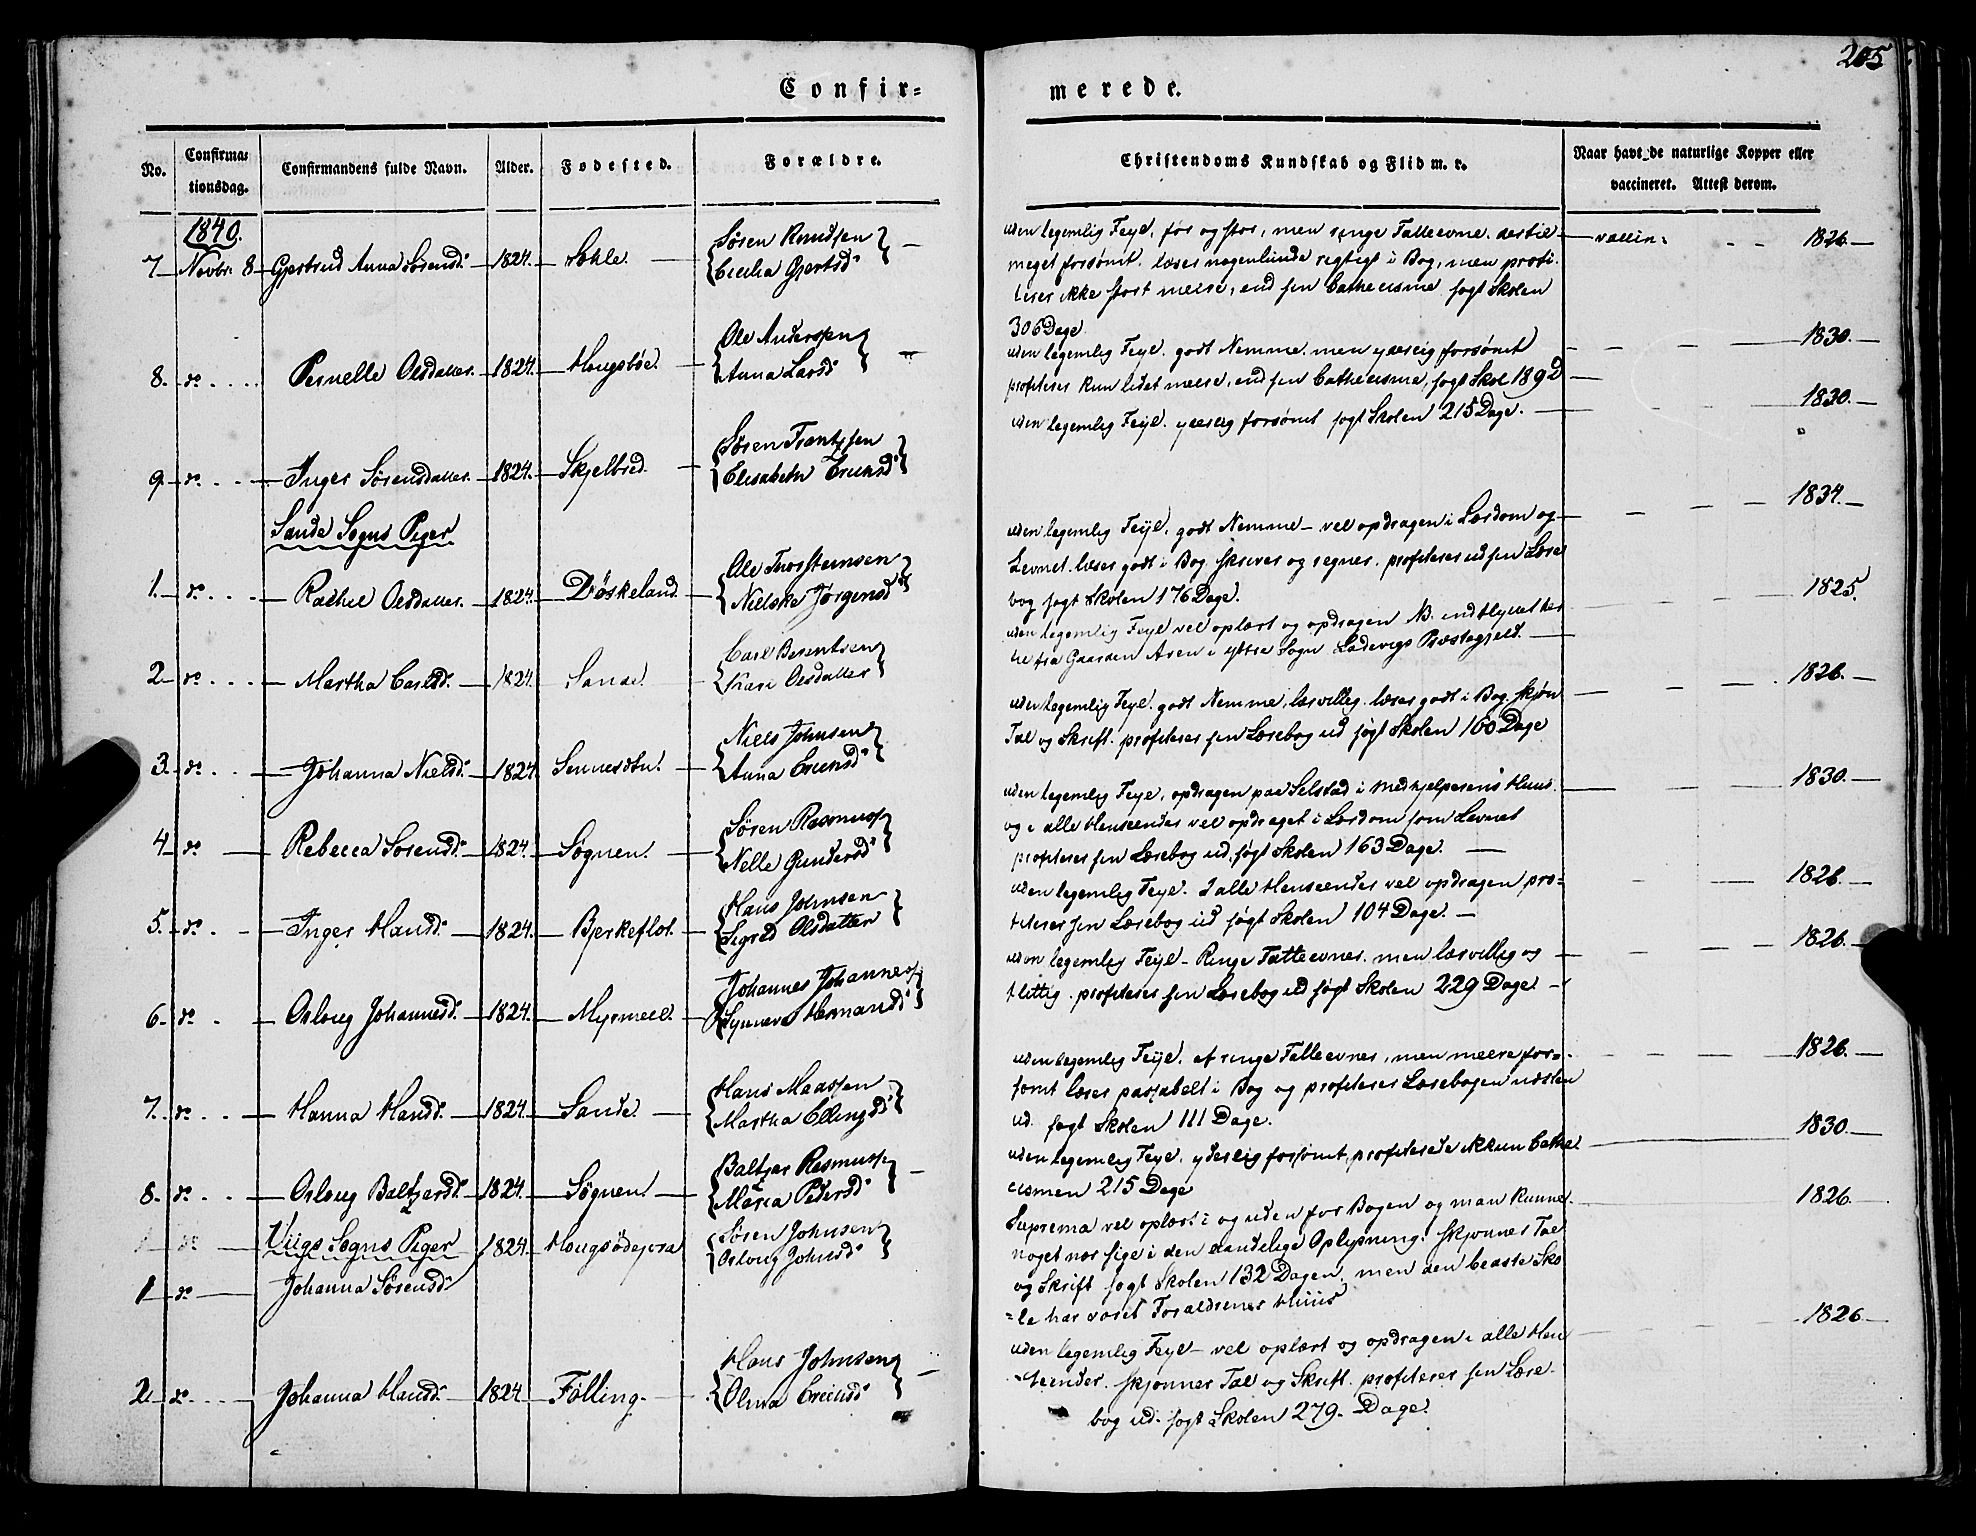 205
Confir= merede.
No. Confirma: tionsdag. Confirmandens fulde Navn. Alder. Fødested. Forældre. Christendoms Kundskab og Flid m. v. Naar havt de naturlige Kopper eller vaccineret. Attest derom.
1840.
7 Novbr. 8 Gjertrud Anna Sørensd. 1824. Søhle Søren Knudsen
Cecilia Gjertsd.
uden legemlig Feyl, før og stor, men ringe Talleevne, dertil vaccin: 1826.
meget forsømt. læser nogenlunde rigtigt i Bog, men profi-
terer ikke stort meere, end sin Cathecisme søgt Skolen
306 Dage
8. do Pernelle Olsdatter. 1824. Hougsbøe. Ole Andersen
Anna Larsd.
uden legemlig Feyl. godt Nemme. men yderlig forsømt 1830.
profiterer kun lidet meere, end sin Cathecisme, søgt Skol 189 D
9 do Inger Sørensdatter. 1824. Skjelbred. Søren Frantzsen
Elisabeth Ericksd.
uden legemlig Feyl. yderlig forsømt søgt Skolen 215 Dage. 1830.
Sande Sogns Piger
1. do Rachel Olsdatter. 1824. Døskeland Ole Thorsteinsen
Nielske Jørgensd.
uden legemlig Feyl, godt Nemme - vel opdragen i Lærdom og 1834.
Levnet. læser godt i Bog skriver og regner. profiterer ud sin Læse
bog søgt Skolen 176 Dage.
2 do Martha Carlsd. 1824. Sande. Carl Berentsen
Kari Olsdatter
uden legemlig Feyl vel oplært og opdragen NB. indflyttet her 1825.
til fra Gaarden Aven i Yttre Sogn Ladevigs Præstegjeld.
3. do Johanna Nielsd. 1824. Niels Johnsen
Anna Ericksd.
uden legemlig Feyl. godt Nemme, lærvillig. læser godt i Bog. skjøn 1826.
Tal og Skrift. profiterer sin Læsebog ud søgt Skolen 160 Dage
4 do Rebecca Sørensd. 1824. Søgnen. Søren Rasmuss
Nelle Gundersd.
uden legemlig Feyl, opdragen paa Selstad i Medhjelperens Huus. 1830.
og i alle Henseender vel opdraget i Lærdom som Levnet
profiterer sin Læsebog ud, søgt Skolen 163 Dage.
5. do Inger Hansd. 1824. Bjerkeflot. Hans Johnsen
Sigrid Olsdatter
uden legemlig Feyl. I alle Henseender vel opdragen pro- 1826.
fiterer sin Læsebog ud søgt Skolen 104 Dage.
6. do Oslaug Johannesd. 1824. Myrmeel. Johannes Johanness
Synneve Hermandsd.
uden legemlig Feyl - Ringe Fatteevner. men lærvillig og 1826.
flittig. profiterer sin Læsebog ud søgt Skolen 229 Dage
7. do Hanna Hansd. 1824. Sande. Hans Maassen
Martha Ellingsd.
uden legemlig Feyl. af ringe Fatteevner, men meere for- 1826.
sømt læser passabelt i Bog og profiterer Læsebogen næsten
ud. søgt Skolen 111 Dage.
8. do Oslaug Baltzersd. 1824. Søgnen Baltzer Rasmuss
Maria Pedersd.
uden legemlig Feyl, yderlig forsømt, profiterede ikkun Cathe 1830.
cismen 215 Dage
1 do Viigs Sogns Piger 1824. Hougsødegra Søren Johnsen
Oslaug Johnsd.
1 do Johanna Sørensd.
Suprema vel oplært i og uden for Bogen og man kunne 1826.
noget nær sige i den aandelige Oplysning. skjønner Tal
og Skrift søgt Skolen 132 Dagen, men den beste Sko
=le har været Forældrenes Huus
2. do Johanna Hansd. 1824 Følling. Hans Johnsen
Olina Ericksd.
uden legemlig Feyl - vel oplært og opdragen i alle Hen 1826
=seender. skjønner Tal og Skrift. profiterer sin Læse-
bog ud. søgt Skolen 279. Dage.